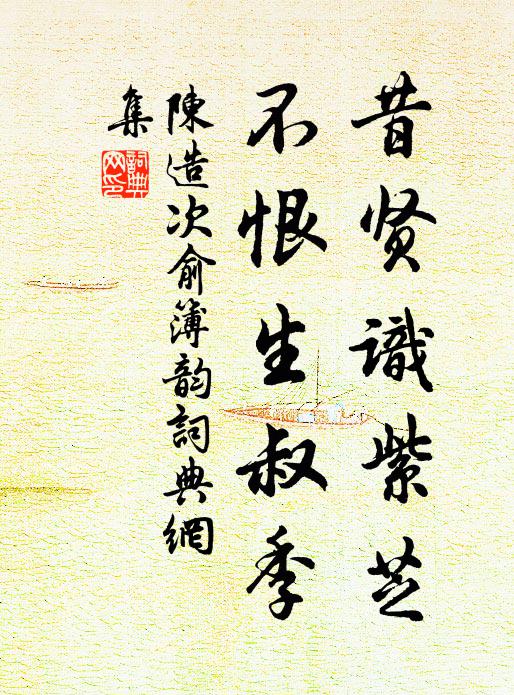 昔贤識紫芝
不恨生叔季
陳造次俞簿韵詞典網
集
詞典
网印